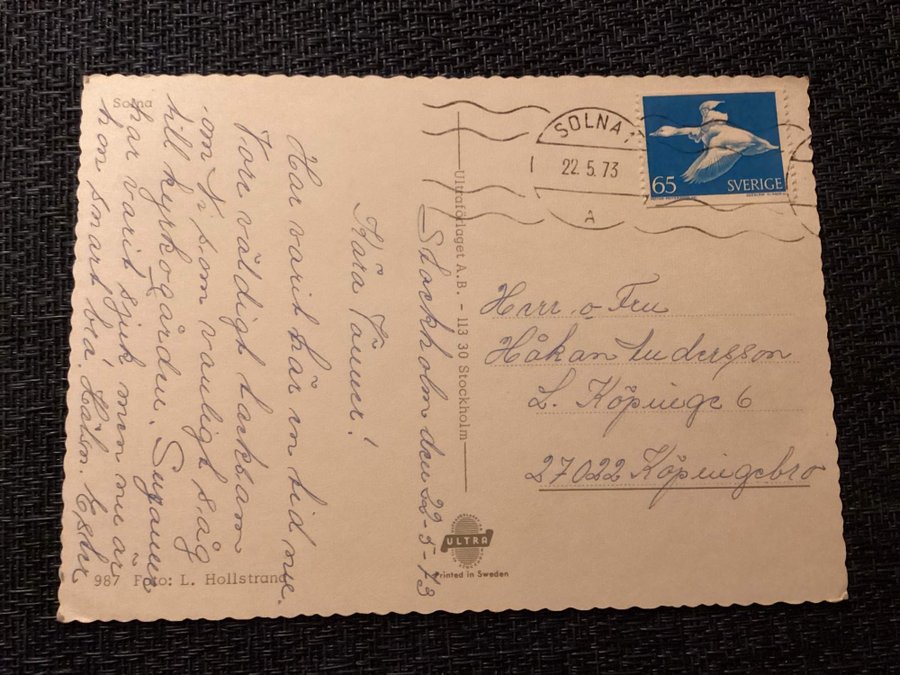 Solna
Stockholm den 22-5-73
Kära Vänner!
Har varit här en tid nu.
Vore väldigt tacksam
om Ni som vanligt såg
till kyrkogården. Suzanne
har varit sjuk men nu är
hon snart bra. Hälsn. Ester
987 Foto: L. Hollstrand
Ultraförlaget A.B. - 113 30 Stockholm
ULTRA
Printed in Sweden
SOLNA 1
22.5.73
A
65 SVERIGE
Herr o Fru
Håkan Andersson
L. Köpinge 6
27022 Köpingebro